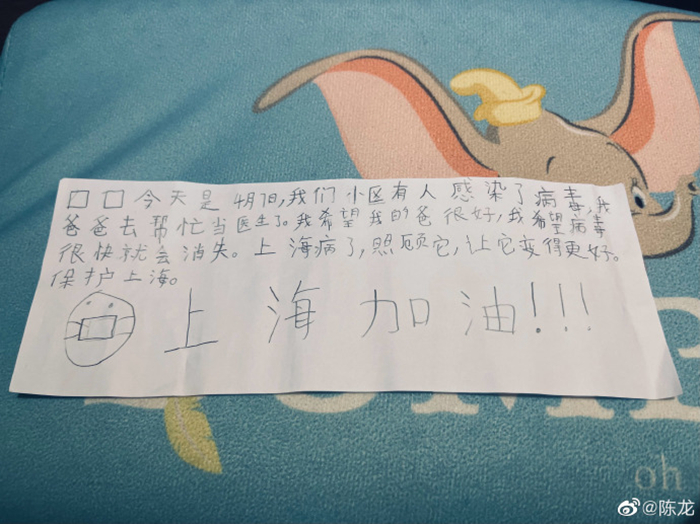 口口今天是4月7日,我们小区有人感染了病毒,我
爸爸去帮忙当医生了。我希望我的爸很好,我希望病毒
很快就会消失。上海病了,照顾它,让它变得更好。
保护上海。
上海加油!!!
oh
@陈龙